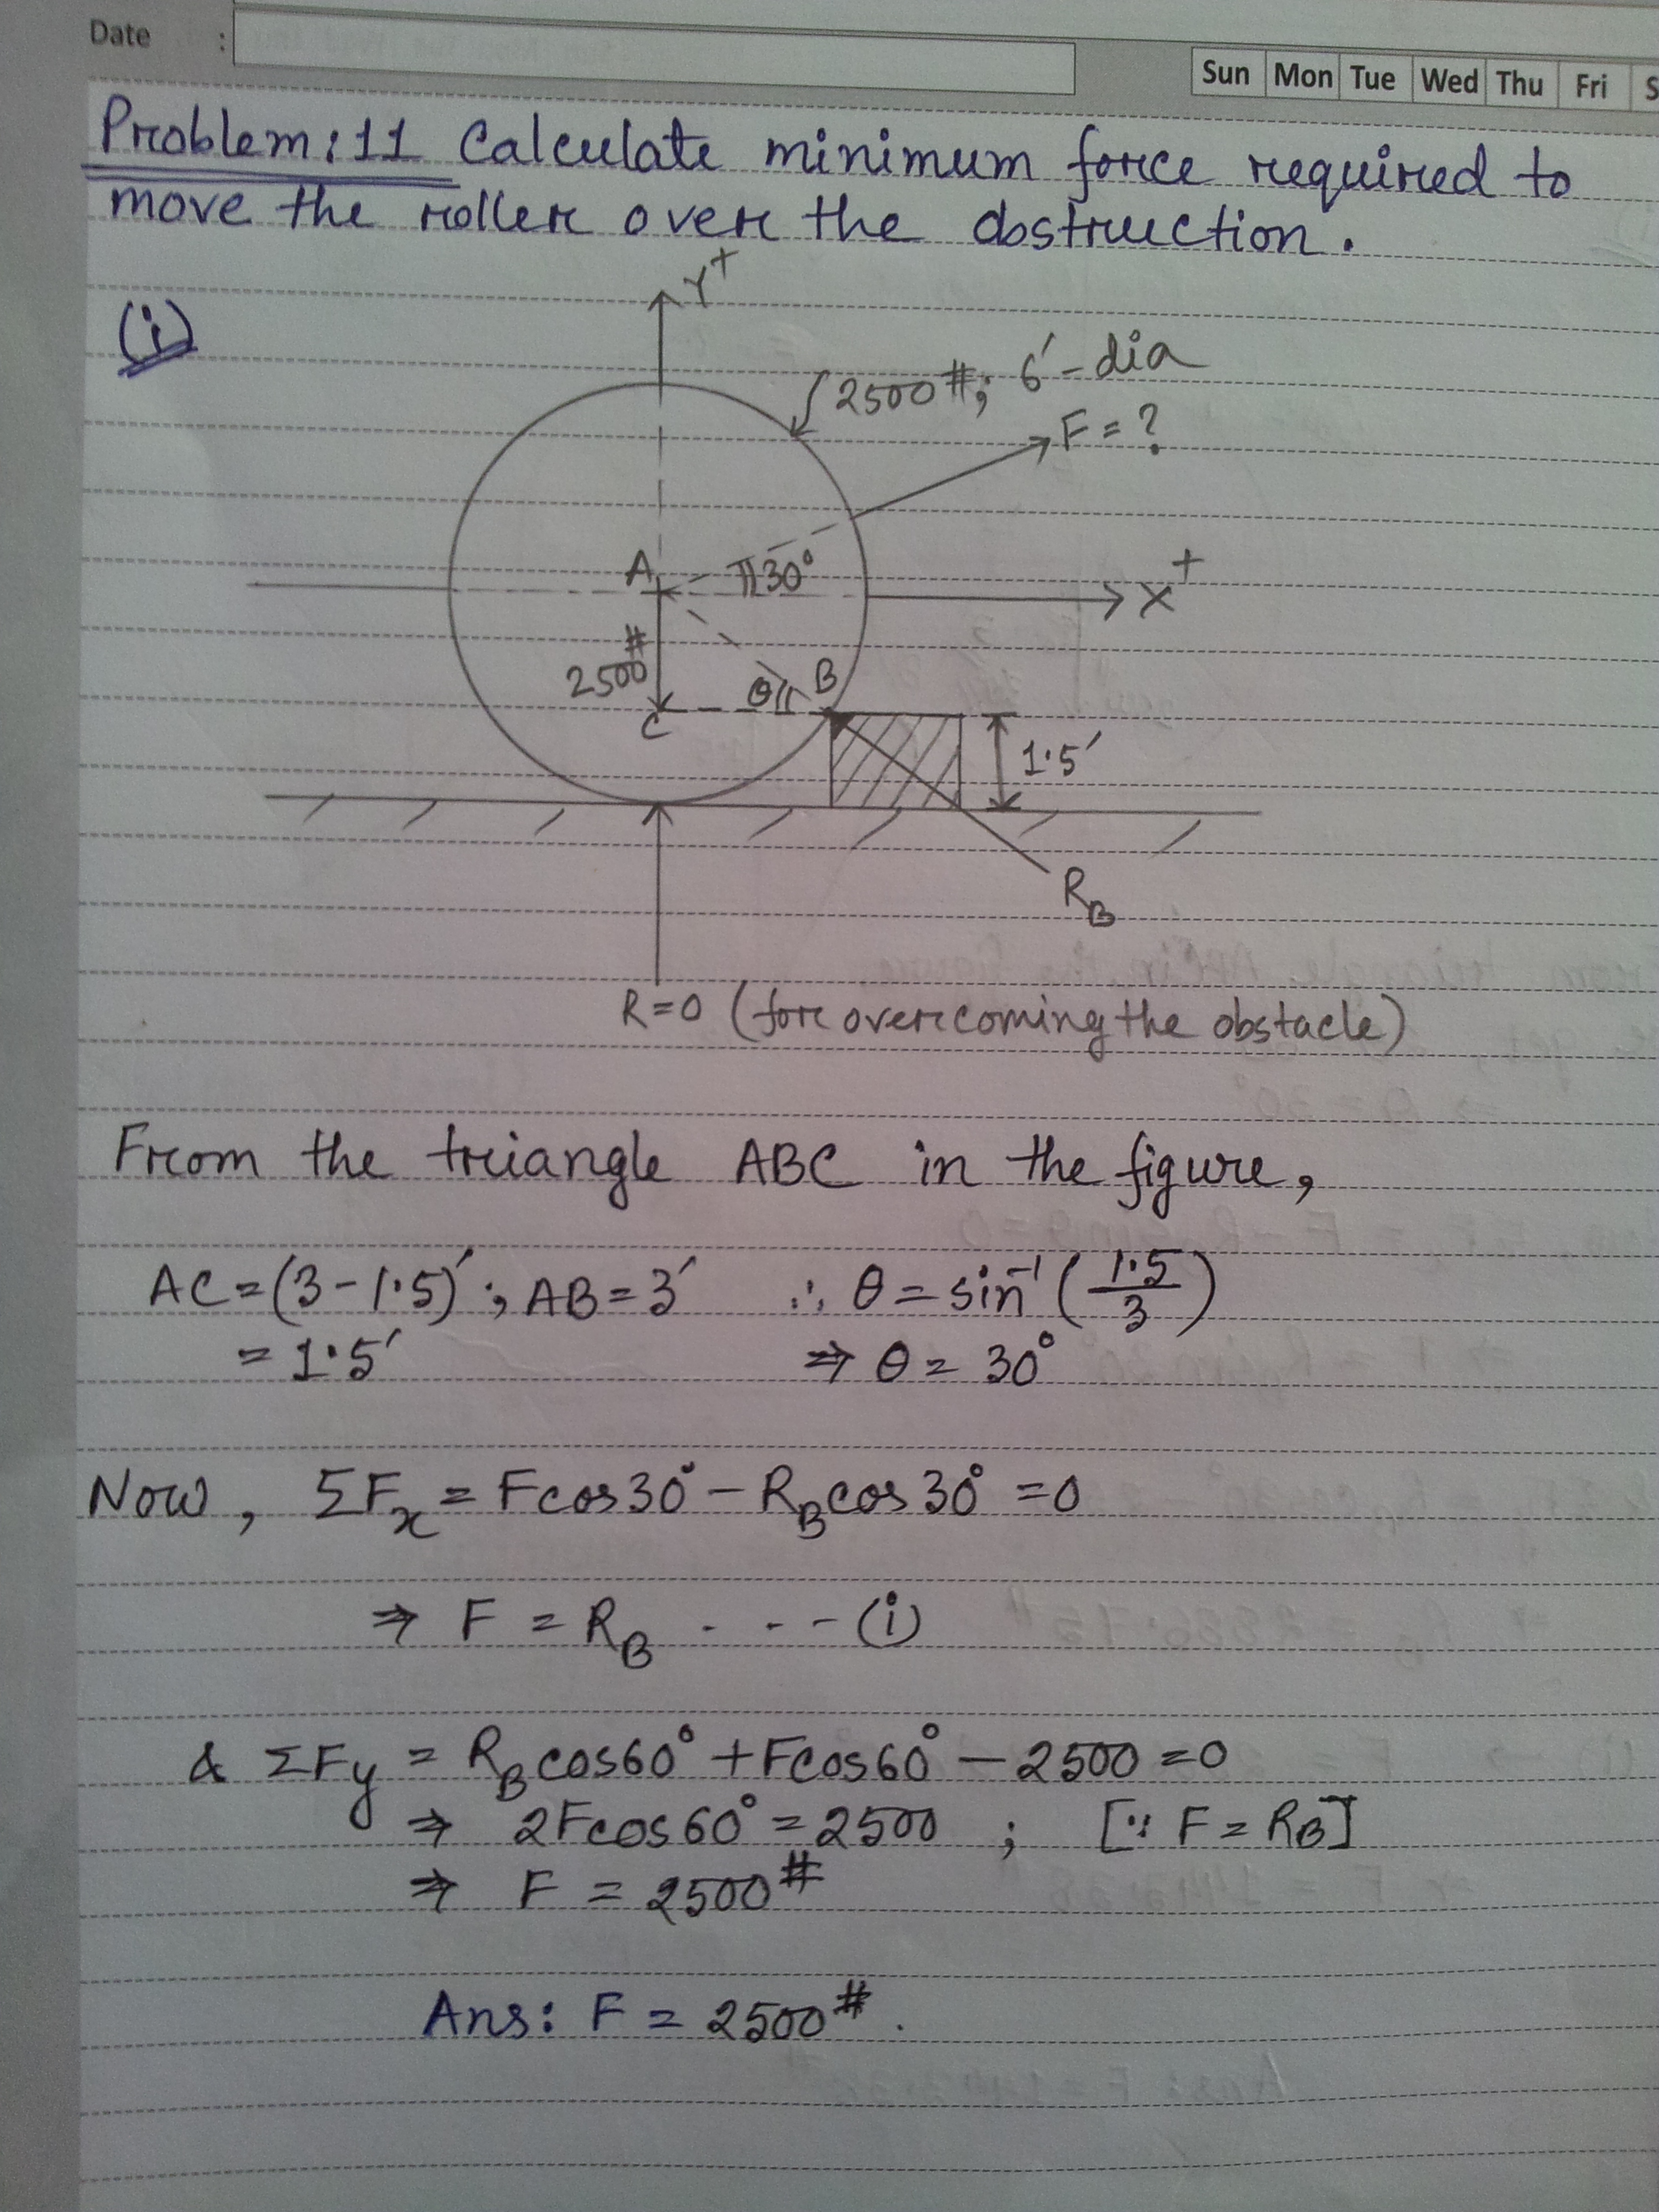 Date :
Sun Mon Tue Wed Thu Fri S
Problem:11 Calculate minimum force required to
move the roller over the obstruction.
(i)
Y+
2500#; 6′-dia
F = ?
A 30°
X+
2500#
θ B
C
1.5′
R_B
R=0 (for overcoming the obstacle)
From the triangle ABC in the figure,
AC=(3-1.5)′; AB=3′ ∴ θ = sin⁻¹(1.5/3)
= 1.5′ ⇒ θ = 30°
Now, ΣFx = Fcos30° - R_Bcos30° = 0
⇒ F = R_B - - - - (i)
& ΣFy = R_Bcos60° + Fcos60° - 2500 = 0
⇒ 2Fcos60° = 2500 ; [∵ F = R_B]
⇒ F = 2500#
Ans: F = 2500#.